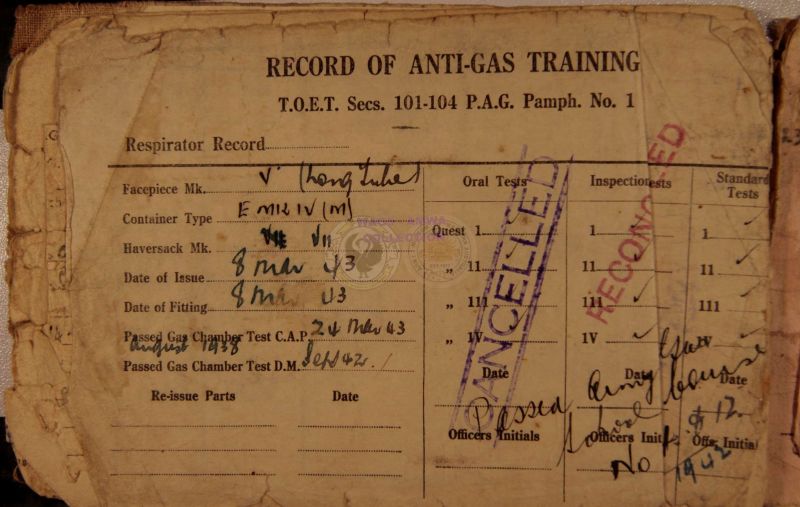 RECORD OF ANTI-GAS TRAINING
T.O.E.T. Secs. 101-104 P.A.G. Pamph. No. 1
Respirator Record
Facepiece Mk. V (Long Tube)
Container Type E MK IV (M)
Haversack Mk. VII VII
Date of Issue 8 Mar 43
Date of Fitting 8 Mar 43
Passed Gas Chamber Test C.A.P. 24 Mar 43
August 1938
Passed Gas Chamber Test D.M. Sept 42
Re-issue Parts Date
Oral Tests Inspection Tests Standard Tests
Quest 1 1 1
„ 11 11 11
„ 111 111 111
„ 1V 1V 1V
Date Date Date
Officers Initials Officers Init Offs. Initial
CANCELLED
Passed Army Gas
School Course
No
1942
COLLECTION